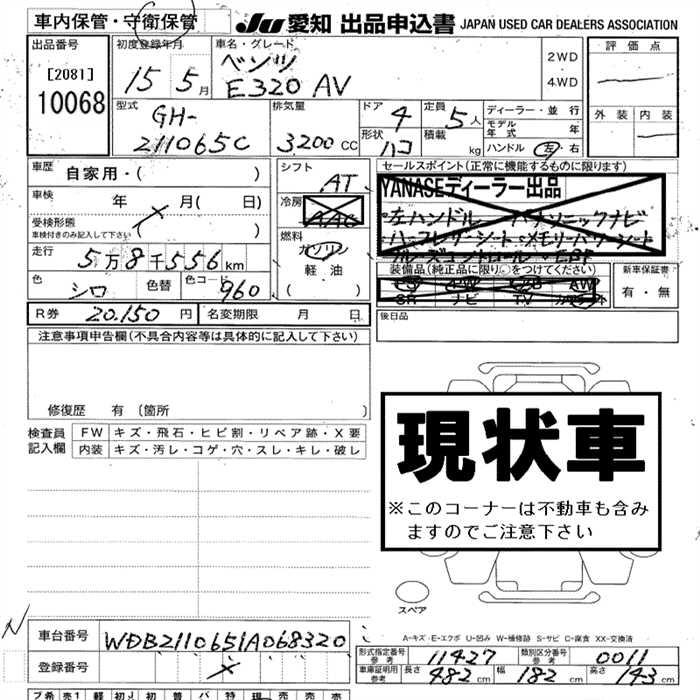 車内保管・守衛保管 JU 愛知 出品申込書 JAPAN USED CAR DEALERS ASSOCIATION
出品番号 初度登録年月 車名・グレード 評価点
[2081] 15年 5月 ベンツ 2WD
10068 E320 AV 4WD
型式 排気量 ドア 4 定員 5人 ディーラー・並行 外装 内装
GH- モデル年式 年
211065C 3200CC 形状 ハコ 積載 kg ハンドル 左・右
車歴 自家用・( ) シフト セールスポイント(正常に機能するものに限ります)
AT YANASEディーラー出品
車検 年 月( 日) 冷房 左ハンドル パナソニックナビ
受検形態 AAC ハーフレザーシート・メモリーパワーシート
車検付きのみ記入して下さい ( ) クルーズコントロール
走行 5万8千556km 燃料 ガソリン 装備品(純正品に限り○をつけてください) 新車保証書
色 シロ 色替 色コード 960 軽油 PS PW AW 有・無
( ) SR ナビ TV
R券 20.150円 名変期限 月 日 後日品
注意事項申告欄(不具合内容等は具体的に記入して下さい)
修復歴 有 (箇所 )
検査員 FW キズ・飛石・ヒビ割・リペア跡・X要
記入欄 内装 キズ・汚レ・コゲ・穴・スレ・キレ・破レ
現状車
※このコーナーは不動車も含み
ますのでご注意下さい
スペア
A-キズ・E-エクボ U-凹み W-補修跡 S-サビ C-腐食 XX-交換済
N 車台番号 WDB2110651A068320
登録番号 ×
形式指定番号 参考 11427 類別区分番号 参考 0011
車庫証明用 参考 長さ 482cm 幅 182cm 高さ 143cm